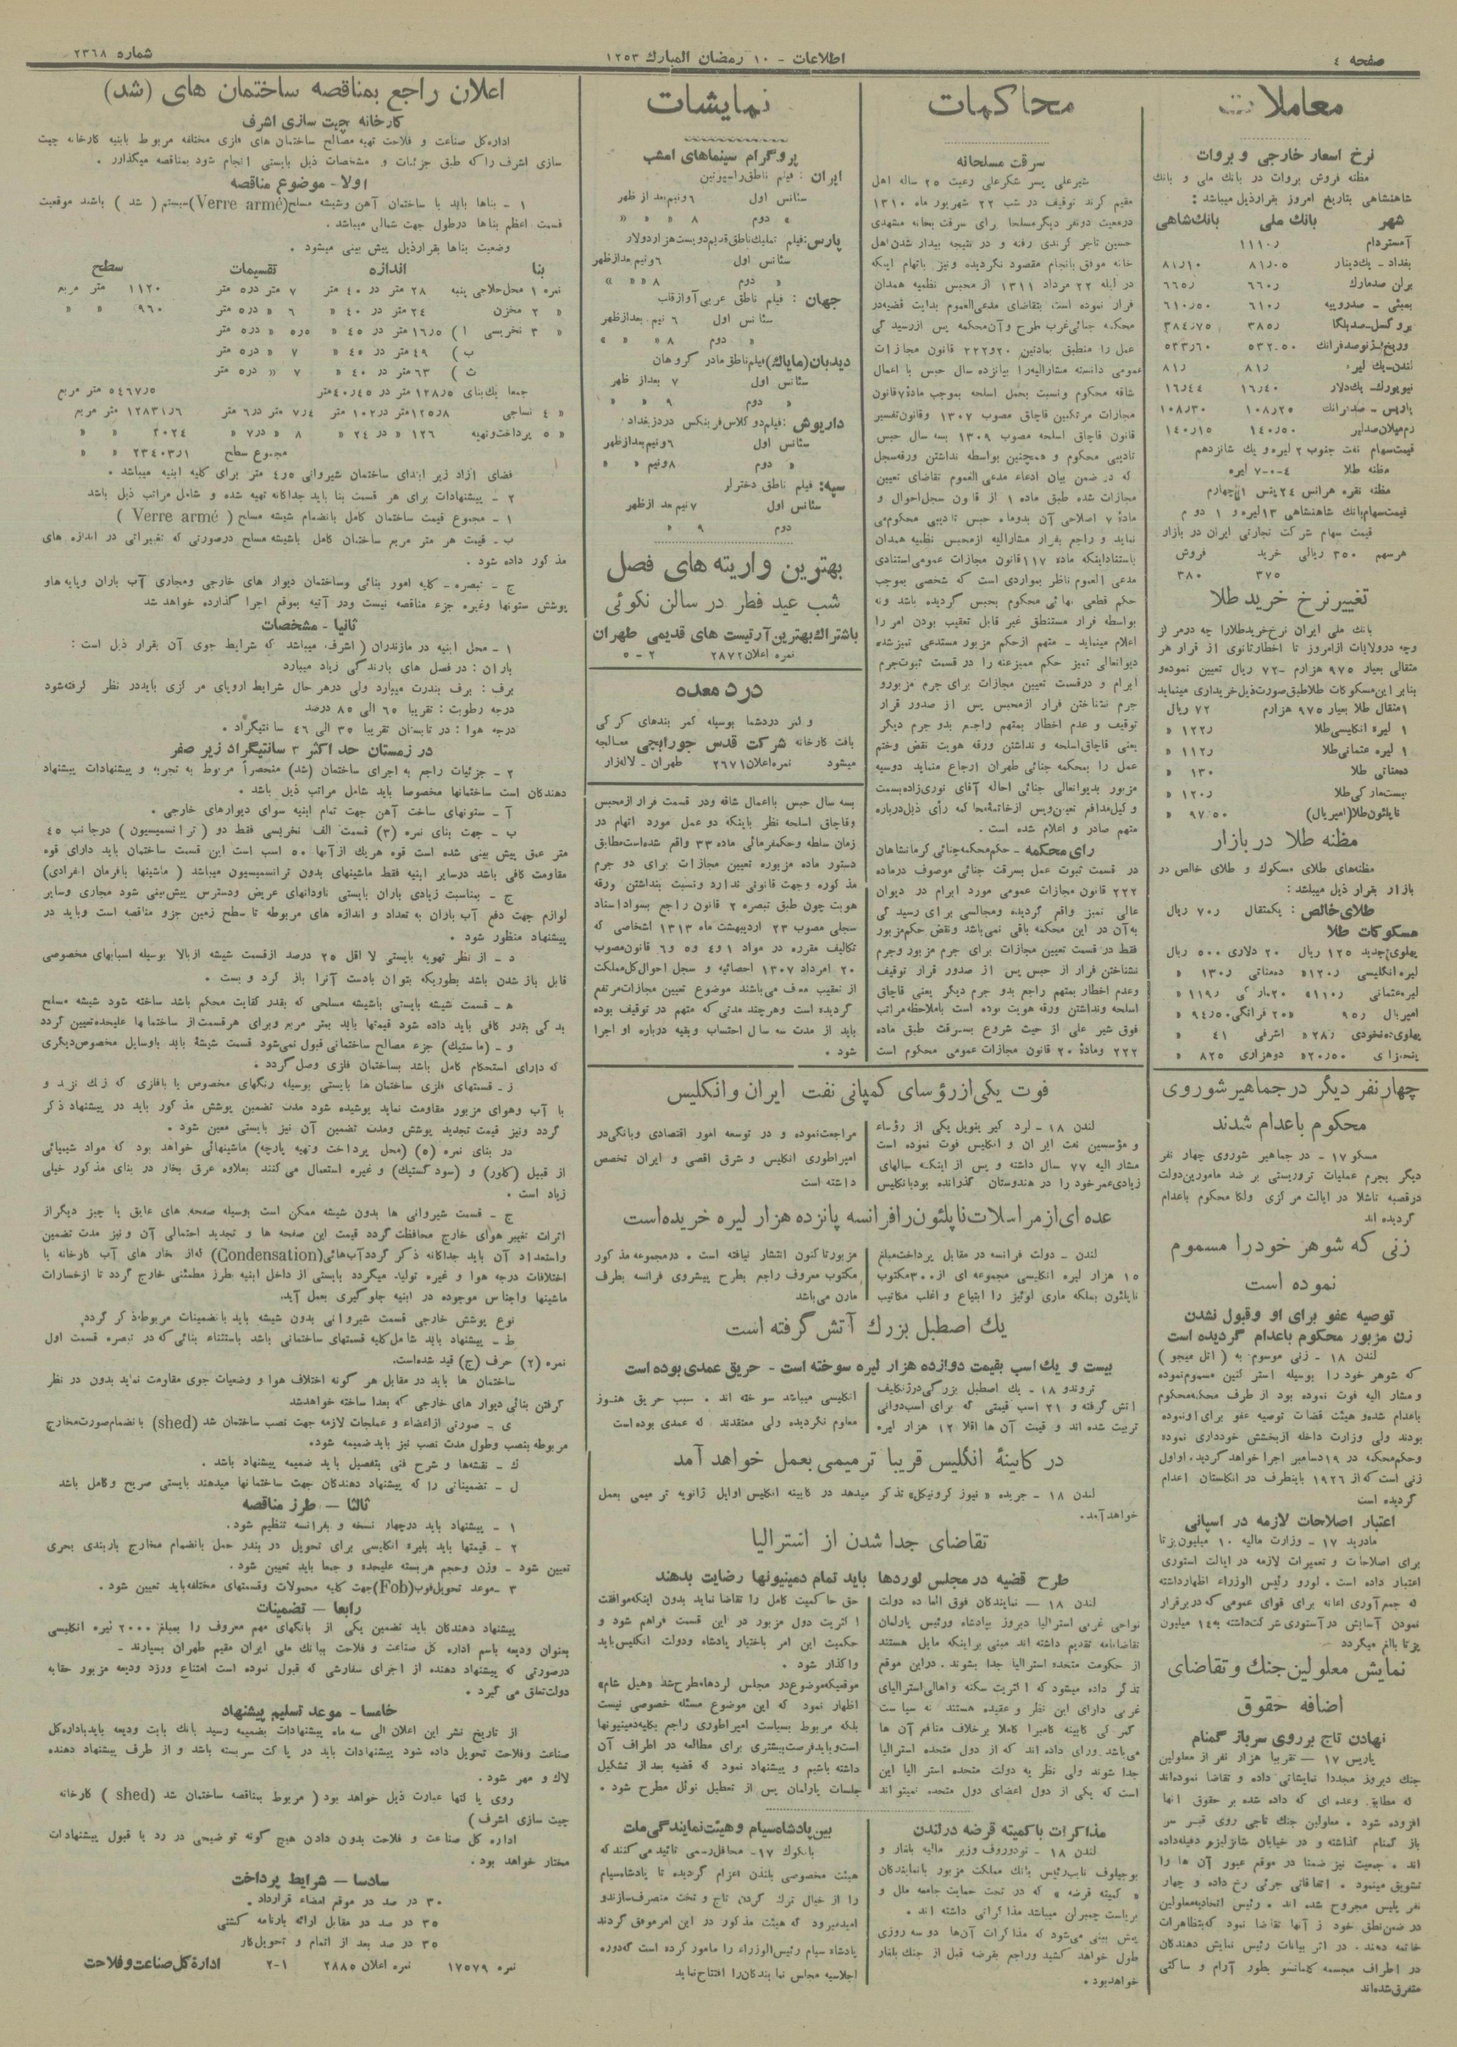 صفحه ٤
اطلاعات - ١٠ رمضان المبارك ١٢٥٣
شماره ٢٣٦٨
معاملات
نرخ اسعار خارجی و بروات
مظنه فروش بروات در بانك ملی و بانك
شاهنشاهی بتاریخ امروز بقرارذیل میباشد :
شهر بانك ملی بانك‌شاهی
آمستردام ١١١٠ر
بغداد - یكدینار ٨١ر٠٥ ٨١ر١٠
برلن صدمارك ٦٦٠ر ٦٦٥ر
بمبئی - صدروپیه ٦١٠ر ٦١٠ر٥٠
بروكسل-صدبلگا ٣٨٥ر ٣٨٤ر٧٥
لندن-یك لیره ٨١ر ٨١ر
نیویورك - یك‌دلار ١٦ر٤٠ ١٦ر٤٤
پاریس - صدفرانك ١٠٨ر٢٥ ١٠٨ر٣٠
رم‌میلان‌صدلیر ١٤٠ر٥٠ ١٤٠ر١٥
قیمت‌سهام نفت جنوب ٢ لیره و یك شانزدهم
مظنه طلا ٤-٠-٧ لیره
قیمت سهام شركت تجارتی ایران در بازار
هرسهم ٣٥٠ ریالی خرید فروش
٣٧٥ ٣٨٠
تغییر نرخ خرید طلا
بانك ملی ایران نرخ‌خرید‌طلارا چه درمركز
وچه درولایات ازامروز تا اخطارثانوی از قرار هر
مثقالی بعیار ٩٧٥ هزارم -٧٢ ریال تعیین نموده‌و
بنابر این مسكوكات طلاطبق‌صورت‌ذیل‌خریداری مینماید
١مثقال طلا بعیار ٩٧٥ هزارم ٧٢ ریال
١ لیره انگلیسی‌طلا ١٢٢ر «
١ لیره عثمانی‌طلا ١١٢ر «
ده‌مناتی طلا ١٣٠ «
بیست‌ماركی‌طلا ١٢٠ر «
ناپلئون‌طلا(امپریال) ٩٧ر٥٠ «
مظنه طلا در بازار
مظنه‌های طلای مسكوك و طلای خالص در
بازار بقرار ذیل میباشد:
طلای‌خالص : یكمثقال ٧٠ر ریال
مسكوكات طلا
پهلوی‌جدید ١٢٥ ریال ٢٠ دلاری ٥٠٠ ریال
لیره‌انگلیسی ١٢٠ر« ده‌مناتی ١٣٠ر «
لیره‌عثمانی ١١٠ر« ٢٠ماركی ١١٩ر «
امپریال ٩٥ر «٢٠ فرانكی ٩٤ر٥٠ «
پهلوی‌ده‌نخودی ٢٨ر« اشرفی ٤١ «
پنجهزاری ٢٠ر٥٠« دوهزاری ٨٢٥ «
چهار نفر دیگر در جماهیر شوروی
محكوم باعدام شدند
مسكو ١٧ - در جماهیر شوروی چهار نفر
دیگر بجرم عملیات تروریستی بر ضد مامورین‌دولت
درقصبه ناشلا در ایالت مركزی ولگا محكوم باعدام
گردیده اند
زنی كه شوهر خود را مسموم
نموده است
توصیه عفو برای او وقبول نشدن
زن مزبور محكوم باعدام گردیده است
لندن ١٨ - زنی موسوم به ( اتل میجر )
كه شوهر خود را بوسیله استر كنین مسموم‌نموده
و مشار الیه فوت نموده بود از طرف محكمه‌محكوم
باعدام شده‌و هیئت قضات توصیه عفو برای اونموده
بودند ولی وزارت داخله ازبخشش خودداری نموده
وحكم‌محكمه در ١٩دسامبر اجرا خواهدگردید. اواول
زنی است‌كه‌از ١٩٢٦ باینطرف در انگلستان اعدام
گردیده است
اعتبار اصلاحات لازمه در اسپانی
مادرید ١٧ - وزارت مالیه ١٠ میلیون‌پزتا
برای اصلاحات و تعمیرات لازمه در ایالت استوری
اعتبار داده است . لورو رئیس الوزراء اظهارداشته
كه جمع‌آوری اعانه برای قوای عمومی كه دربرقرار
نمودن آسایش درآستوری شركت‌داشته به‌١٤ میلیون
پزتا بالغ میگردد
نمایش معلولین جنك و تقاضای
اضافه حقوق
نهادن تاج برروی سرباز گمنام
پاریس ١٧ — تقریبا هزار نفر از معلولین
جنك دیروز مجددا نمایشاتی داده و تقاضا نموده‌اند
كه مطابق وعده ای كه داده شده بر حقوق آنها
افزوده شود . معلولین جنك تاجی روی قبر سر
باز گمنام گذاشته و در خیابان شانزلیزه دفیله‌داده
اند . جمعیت نیز ضمنا در موقع عبور آن ها را
تشویق مینمود . اتفاقاتی جزئی رخ داده و چهار
نفر پلیس مجروح شده اند . رئیس اتحادیه‌معلولین
در ضمن‌نطق خود از آنها تقاضا نمود كه‌بتظاهرات
خاتمه دهند. در اثر بیانات رئیس نمایش دهندگان
در اطراف مجسمه كلمانسو بطور آرام و ساكتی
متفرق‌شده‌اند
محاكمات
سرقت مسلحانه
شیرعلی پسر شكرعلی رعیت ٢٥ ساله اهل
مقیم كرند توقیف در شب ٢٢ شهریور ماه ١٣١٠
درمعیت دونفر دیگرمسلحا برای سرقت بخانه مشهدی
حسین تاجر كرندی رفته و در نتیجه بیدار شدن‌اهل
خانه موفق بانجام مقصود نگردیده ونیز باتهام اینكه
در لیله ٢٢ مرداد ١٣١١ از محبس نظمیه همدان
فرار نموده است بتقاضای مدعی‌العموم بدایت قضیه‌در
محكمه جنائی‌غرب طرح وآن‌محكمه پس ازرسیدگی
عمل را منطبق بمادتین ٢٠و٢٢٢ قانون مجازات
عمومی دانسته مشارالیه‌را بپانزده سال حبس با اعمال
شاقه محكوم ونسبت بحمل اسلحه بموجب ماده‌٧قانون
مجازات مرتكبین قاچاق مصوب ١٣٠٧ وقانون‌تفسیر
قانون قاچاق اسلحه مصوب ١٣٠٩ بسه سال حبس
تادیبی محكوم و همچنین بواسطه نداشتن ورقه‌سجل
كه در ضمن بیان ادعاء مدعی العموم تقاضای تعیین
مجازات شده طبق ماده ١ از قانون سجل‌احوال و
مادهٔ ٧ اصلاحی آن بدوماه حبس تادیبی محكوم‌می
نماید و راجع بفرار مشارالیه ازمحبس نظمیه همدان
باستناداینكه ماده ١١٧قانون مجازات عمومی‌استنادی
مدعی العموم ناظر بمواردی است كه شخصی بموجب
حكم قطعی نهائی محكوم بحبس گردیده باشد ونه
بواسطه قرار مستنطق غیر قابل تعقیب بودن امر را
اعلام مینماید - متهم ازحكم مزبور مستدعی تمیزشده
دیوانعالی تمیز حكم ممیزعنه را در قسمت ثبوت‌جرم
ابرام و درقسمت تعیین مجازات برای جرم مزبورو
جرم نشناختن فرار ازمحبس پس از صدور قرار
توقیف و عدم اخطار بمتهم راجع بدو جرم دیگر
یعنی قاچاق‌اسلحه و نداشتن ورقه هویت نقض وختم
عمل را بمحكمه جنائی طهران ارجاع مینماید دوسیه
مزبور بدیوانعالی جنائی احاله آقای نوری‌زاده‌بسمت
وكیل‌مدافع تعیین‌وپس ازخاتمهٔ‌محاكمه رأی ذیل‌درباره
متهم صادر و اعلام شده است .
رای‌محكمه - حكم‌محكمه‌جنائی كرمانشاهان
در قسمت ثبوت عمل بسرقت جنائی موصوف درماده
٢٢٢ قانون مجازات عمومی مورد ابرام در دیوان
عالی تمیز واقع گردیده ومجالسی برای رسیدگی
به‌آن در این محكمه باقی نمی‌باشد ونقض حكم‌مزبور
فقط در قسمت تعیین مجازات برای جرم مزبور وجرم
نشناختن فرار از حبس پس از صدور قرار توقیف
وعدم اخطار بمتهم راجع بدو جرم دیگر یعنی قاچاق
اسلحه ونداشتن ورقه هویت بوده است باملاحظه‌مراتب
فوق شیر علی از حیث شروع بسرقت طبق ماده
٢٢٢ ومادهٔ ٢٠ قانون مجازات عمومی محكوم است
نمایشات
پروگرام سینماهای امشب
ایران : فیلم ناطق‌راسپوتین
سئانس اول ٦ونیم‌بعد از ظهر
« دوم ٨ « « «
سئانس اول ٦ونیم بعدازظهر
« دوم ٨ « « «
جهان : فیلم ناطق عربی آوازقلب
سئانس اول ٦ نیم بعدازظهر
« دوم ٨ « « «
دیدبان(مایاك)فیلم‌ناطق‌مادر گروهان
سئانس اول ٧ بعداز ظهر
« دوم ٩ « «
داریوش :فیلم‌دوكلاس‌فربنكس دردزدبغداد:
سئانس اول ٦ونیم‌بعدازظهر
« دوم ٨ونیم « «
سپه: فیلم ناطق دخترلر
سئانس اول ٧نیم بعد ازظهر
دوم ٩ « «
بهترین واریته های فصل
شب عید فطر در سالن نكوئی
باشتراك‌بهترین‌آرتیست های قدیمی طهران
نمره اعلان٢٨٧٢ ٢-٥
درد معده
و كمر دردشما بوسیله كمر بندهای كركی
بافت كارخانه شركت قدس جورابچی معالجه
میشود نمره‌اعلان٢٦٧١ طهران - لاله‌زار
بسه سال حبس بااعمال شاقه ودر قسمت فرار ازمحبس
وقاچاق اسلحه نظر باینكه دو عمل مورد اتهام در
زمان سلطه وحكمفرمائی ماده ٣٣ واقع شده‌است‌مطابق
دستور ماده مزبوره تعیین مجازات برای دو جرم
مذكوره وجهت قانونی ندارد ونسبت بنداشتن ورقه
هویت چون طبق تبصره ٢ قانون راجع بسواد‌اسناد
سجلی مصوب ٢٣ اردیبهشت ماه ١٣١٣ اشخاصی كه
تكالیف مقرره در مواد ١و٤ و٥ و٦ قانون‌مصوب
٢٠ امرداد ١٣٠٧ احصائیه و سجل احوال‌كل‌مملكت
از تعقیب معاف می‌باشند موضوع تعیین مجازات‌مرتفع
گردیده است وهرچند مدتی كه متهم در توقیف بوده
باید از مدت سه سال احتساب وبقیه درباره او اجرا
شود .
فوت یكی‌از رؤسای كمپانی نفت ایران و انگلیس
مراجعت‌نموده و در توسعه امور اقتصادی وبانكی‌در
امپراطوری انگلیس و شرق اقصی و ایران تخصص
داشته است
و مؤسسین نفت ایران و انگلیس فوت نموده است
مشار الیه ٧٧ سال داشته و پس از اینكه سالهای
زیادی‌عمر خود را در هندوستان گذرانده بود‌بانگلیس
عده ای‌از مراسلات‌ناپلئون‌را‌فرانسه پانزده هزار لیره خریده‌است
لندن - دولت فرانسه در مقابل پرداخت‌مبلغ
١٥ هزار لیره انگلیسی مجموعه ای از٣٠٠مكتوب
ناپلئون بملكه ماری لوئیز را ابتیاع و اغلب مكاتیب
مزبور‌تاكنون انتشار نیافته است . درمجموعه مذكور
مكتوب معروف راجع بطرح پیشروی فرانسه بطرف
مارن می‌باشد
یك اصطبل بزرك آتش گرفته است
بیست و یك اسب بقیمت دوازده هزار لیره سوخته است - حریق عمدی بوده است
تروندو ١٨ - یك اصطبل بزرگی‌درژنكلیف
آتش گرفته و ٢١ اسب قیمتی كه برای اسب‌دوانی
تربیت شده اند و قیمت آن ها اقلا ١٢ هزار لیره
انگلیسی میباشد سوخته اند . سبب حریق هنوز
معلوم نگردیده ولی معتقدند كه عمدی بوده است
در كابینهٔ انگلیس قریبا ترمیمی بعمل خواهد آمد
لندن ١٨ - جریده « نیوز كرونیكل» تذكر میدهد در كابینه انگلیس اوایل ژانویه ترمیمی بعمل
خواهدآمد.
تقاضای جدا شدن از استرالیا
طرح قضیه در مجلس لوردها باید تمام دمینیونها رضایت بدهند
لندن ١٨ — نمایندگان فوق العاده دولت
نواحی غربی استرالیا دیروز بپادشاه ورئیس پارلمان
تقاضانامه تقدیم داشته اند مبنی براینكه مایل هستند
از حكومت متحده استرالیا جدا بشوند. دراین موقع
تذكر داده میشود كه اكثریت سكنه واهالی‌استرالیای
غربی دارای این نظر و عقیده هستند كه سیاست
گمركی كابینه كامبرا كاملا برخلاف منافع آن ها
می‌باشد ورای داده اند كه از دول متحده استرالیا
جدا شوند ولی نظر به دولت متحده استرالیا این
است كه یكی از دول اعضای دول متحده نمیتواند
حق حاكمیت كامل را تقاضا نماید بدون اینكه‌موافقت
اكثریت دول مزبور در این قسمت فراهم شود و
حكمیت این امر باختیار پادشاه ودولت انگلیس‌باید
واگذار شود .
موقعیكه‌موضوع‌در مجلس لردها‌مطرح‌شد «هیل شام»
اظهار نمود كه این موضوع مسئله خصوصی نیست
بلكه مربوط بسیاست امپراطوری راجع بكلیه‌دمینیونها
است‌وباید‌فرصت‌بیشتری برای مطالعه در اطراف آن
داشته باشیم و پیشنهاد نمود كه قضیه بعد از تشكیل
جلسات پارلمان پس از تعطیل نوئل مطرح شود .
مذاكرات باكمیته قرضه درلندن
لندن ١٨ - تودوروف وزیر مالیه بلغار و
بوجیلوف نایب‌رئیس بانك مملكت مزبور بانمایندگان
« كمیته قرضه » كه در تحت حمایت جامعه ملل و
بریاست چمبرلن میباشد مذاكراتی داشته اند .
پیش بینی می‌شود كه مذاكرات آن‌ها دو سه روزی
طول خواهد كشید وراجع بقرضه قبل از جنك بلغار
خواهدبود .
بین پادشاه سیام و هیئت نمایندگی ملت
بانكوك ١٧- محافل‌رسمی تائید می‌كنند كه
هیئت مخصوصی بلندن اعزام گردیده تا پادشاه‌سیام
را از خیال ترك كردن تاج و تخت منصرف‌سازندو
امیدمیرود كه هیئت مذكور در این امر‌موفق گردند
پادشاه سیام رئیس‌الوزراء را مامور كرده است كه‌دوره
اجلاسیه مجلس نمایندگان‌را افتتاح‌نماید
اعلان راجع بمناقصه ساختمان های (شد)
كارخانه چیت سازی اشرف
اداره‌كل صناعت و فلاحت تهیه مصالح ساختمان های فلزی مختلفه مربوط بابنیه كارخانه چیت
سازی اشرف را كه طبق جزئیات و مشخصات ذیل بایستی انجام شود بمناقصه میگذارد .
اولا - موضوع مناقصه
١ - بناها باید با ساختمان آهن وشیشه مسلح(Verre armé)-بسیستم ( شد ) باشند موقعیت
قسمت اعظم بناها درطول جهت شمالی میباشد .
وضعیت بناها بقرارذیل پیش بینی میشود .
بنا اندازه تقسیمات سطح
نمره ١ محل‌حلاجی پنبه ٢٨ متر در ٤٠ متر ٧ متر در٥ متر ١١٢٠ متر مربع
« ٢ مخزن ٢٤ متر در ٤٠ « ٦ « در٥ متر ٩٦٠ « «
« ٣ نخریسی ا ) ١٦ر٥ متر در ٤٥ « ٥ر٥ « در٥ متر
ب ) ٤٩ متر در ٤٥ « ٧ « در٥ متر
ث ) ٦٣ متر در ٤٠ « ٧ « در٥ متر
جمعا یك‌بنای ١٢٨ر٥متر در ٤٥ر٤٠متر ٥٤٦٧ر٥ متر مربع
« ٤ نساجی ١٢٥ر٨متر در١٠٢ متر ٧ر٤ متر در٦ متر ١٢٨٣١ر٦ متر مربع
« ٥ پرداخت‌وتهیه ١٢٦ « در ٢٤ « ٨ « در٧ « ٣٠٢٤ « «
مجموع سطح ٢٣٤٠٣ر١ « «
فضای آزاد زیر ابتدای ساختمان شیروانی ٤ر٥ متر برای كلیه ابنیه میباشد .
٢ - پیشنهادات برای هر قسمت بنا باید جداگانه تهیه شده و شامل مراتب ذیل باشد
١ - مجموع قیمت ساختمان كامل بانضمام شیشه مسلح ( Verre armé )
ب - قیمت هر متر مربع ساختمان كامل باشیشه مسلح درصورتی كه تغییراتی در اندازه های
مذكور داده شود .
ج - تبصره - كلیه امور بنائی وساختمان دیوار های خارجی ومجاری آب باران وپایه‌هاو
پوشش ستونها وغیره جزء مناقصه نیست ودر آتیه بموقع اجرا گذارده خواهد شد
ثانیا - مشخصات
١ - محل ابنیه در مازندران ( اشرف) میباشد كه شرایط جوی آن بقرار ذیل است :
باران : در فصل های بارندگی زیاد میبارد
برف : برف بندرت میبارد ولی درهر حال شرایط اروپای مركزی بایددر نظر گرفته‌شود
درجه رطوبت : تقریبا ٦٥ الی ٨٥ درصد
درجه هوا : در تابستان تقریبا ٣٥ الی ٤٦ سانتیگراد .
در زمستان حد اكثر ٣ سانتیگراد زیر صفر
٢ - جزئیات راجع به اجرای ساختمان (شد) منحصراً مربوط به تجربه و پیشنهادات پیشنهاد
دهندگان است ساختمانها مخصوصا باید شامل مراتب ذیل باشد .
آ - ستونهای ساخت آهن جهت تمام ابنیه سوای دیوارهای خارجی .
ب - جهت بنای نمره (٣) قسمت الف نخریسی فقط دو ( ترانسمیسیون ) درجانب ٤٥
متر عمق پیش بینی شده است قوه هریك ازآنها ٥٠ اسب است این قسمت ساختمان باید دارای قوه
مقاومت كافی باشد درسایر ابنیه فقط ماشینهای بدون ترانسمیسیون میباشد ( ماشینها بافرمان انفرادی)
ج - بمناسبت زیادی باران بایستی ناودانهای عریض ودسترس پیش‌بینی شود مجاری وسایر
لوازم جهت دفع آب باران به تعداد و اندازه های مربوطه تا سطح زمین جزو مناقصه است وباید در
پیشنهاد منظور شود .
د - از نظر تهویه بایستی لا اقل ٢٥ درصد ازقسمت شیشه ازبالا بوسیله اسبابهای مخصوصی
قابل باز شدن باشد بطوریكه بتوان بادست آنرا باز كرد و بست .
هـ - قسمت شیشه بایستی باشیشه مسلحی كه بقدر كفایت محكم باشد ساخته شود شیشه مسلح
یدكی بقدر كافی باید داده شود قیمتها باید بمتر مربع وبرای هرقسمت‌از ساختمانها علیحده‌تعیین گردد
و - (ماستیك) جزء مصالح ساختمانی قبول نمی‌شود قسمت شیشهٔ باید باوسایل مخصوص‌دیگری
كه دارای استحكام كامل باشد بساختمان فلزی وصل گردد .
ز - قسمتهای فلزی ساختمان ها بایستی بوسیله رنگهای مخصوص یا بافلزی كه زنك نزند و
با آب وهوای مزبور مقاومت نماید پوشیده شود مدت تضمین پوشش مذكور باید در پیشنهاد ذكر
گردد ونیز قیمت تجدید پوشش ومدت تضمین آن نیز بایستی معین شود .
در بنای نمره (٥) (محل پرداخت وتهیه پارچه) ماشینهائی خواهد بود كه مواد شیمیائی
از قبیل (كلور) و (سودكستیك) و غیره استعمال می كنند بعلاوه عرق بخار در بنای مذكور خیلی
زیاد است .
ح - قسمت شیروانی ها بدون شیشه ممكن است بوسیله صفحه های عایق یا چیز دیگراز
اثرات تغییر هوای خارج محافظت‌گردد قیمت این صفحه ها و تجدید احتمالی آن و نیز مدت تضمین
واستعداد آن باید جداگانه ذكر گردد آب‌هائی(Condensation) كه‌از بخار های آب كارخانه یا
اختلافات درجه هوا و غیره تولید میگردد بایستی از داخل ابنیه بطرز مطمئنی خارج گردد تا ازخسارات
ماشینها واجناس موجوده در ابنیه جلوگیری بعمل آید.
نوع پوشش خارجی قسمت شیروانی بدون شیشه باید باتضمینات مربوط‌ذكر گردد.
ط - پیشنهاد باید شامل‌كلیه قسمتهای ساختمانی باشد باستثناء بنائی كه در تبصره قسمت اول
نمره (٢) حرف (ج) قید شده‌است.
ساختمان ها باید در مقابل هر گونه اختلاف هوا و وضعیات جوی مقاومت نماید بدون در نظر
گرفتن بنائی دیوار های خارجی كه بعدا ساخته خواهدشد
ی - صورتی ازاعضاء و عملجات لازمه جهت نصب ساختمان شد (shed) بانضمام‌صورت‌مخارج
مربوطه بنصب وطول مدت نصب نیز باید ضمیمه شود.
ك - نقشه‌ها و شرح فنی بتفصیل باید ضمیمه پیشنهاد باشد .
ل - تضمیناتی را كه پیشنهاد دهندگان جهت ساختمانها میدهند بایستی صریح وكامل باشد
ثالثا — طرز مناقصه
١ - پیشنهاد باید درچهار نسخه و بفرانسه تنظیم شود.
٢ - قیمتها باید بلیره انگلیسی برای تحویل در بندر حمل بانضمام مخارج باربندی بحری
تعیین شود - وزن وحجم هربسته علیحده و جمعا باید تعیین شود.
٣ -موعد تحویل‌فوب(Fob)جهت كلیه محمولات وقسمتهای مختلفه‌باید تعیین شود .
رابعا — تضمینات
پیشنهاد دهندگان باید تضمین یكی از بانكهای مهم معروف را بمبلغ ٢٠٠٠ لیره انگلیسی
بعنوان ودیعه باسم اداره كل صناعت و فلاحت ببانك ملی ایران مقیم طهران بسپارند -
درصورتی كه پیشنهاد دهنده از اجرای سفارشی كه قبول نموده است امتناع ورزد ودیعه مزبور حقا‌به
دولت‌تعلق می گیرد .
خامسا - موعد تسلیم پیشنهاد
از تاریخ نشر این اعلان الی سه ماه پیشنهادات بضمیمه رسید بانك بابت ودیعه باید‌باداره‌كل
صناعت وفلاحت تحویل داده شود پیشنهادات باید در پاكت سربسته باشد و از طرف پیشنهاد دهنده
لاك و مهر شود .
روی پاكتها عبارت ذیل خواهد بود ( مربوط بمناقصه ساختمان شد (shed ) كارخانه
چیت سازی اشرف )
اداره كل صناعت و فلاحت بدون دادن هیچ گونه توضیحی در رد یا قبول پیشنهادات
مختار خواهد بود .
سادسا — شرایط پرداخت
٣٠ در صد در موقع امضاء قرارداد .
٣٥ در صد در مقابل ارائه بارنامه كشتی
٣٥ در صد بعد از اتمام و تحویل‌كار
نمره ١٧٥٧٩ نمره اعلان ٢٨٨٥ ٢-١ اداره‌كل‌صناعت‌و‌فلاحت